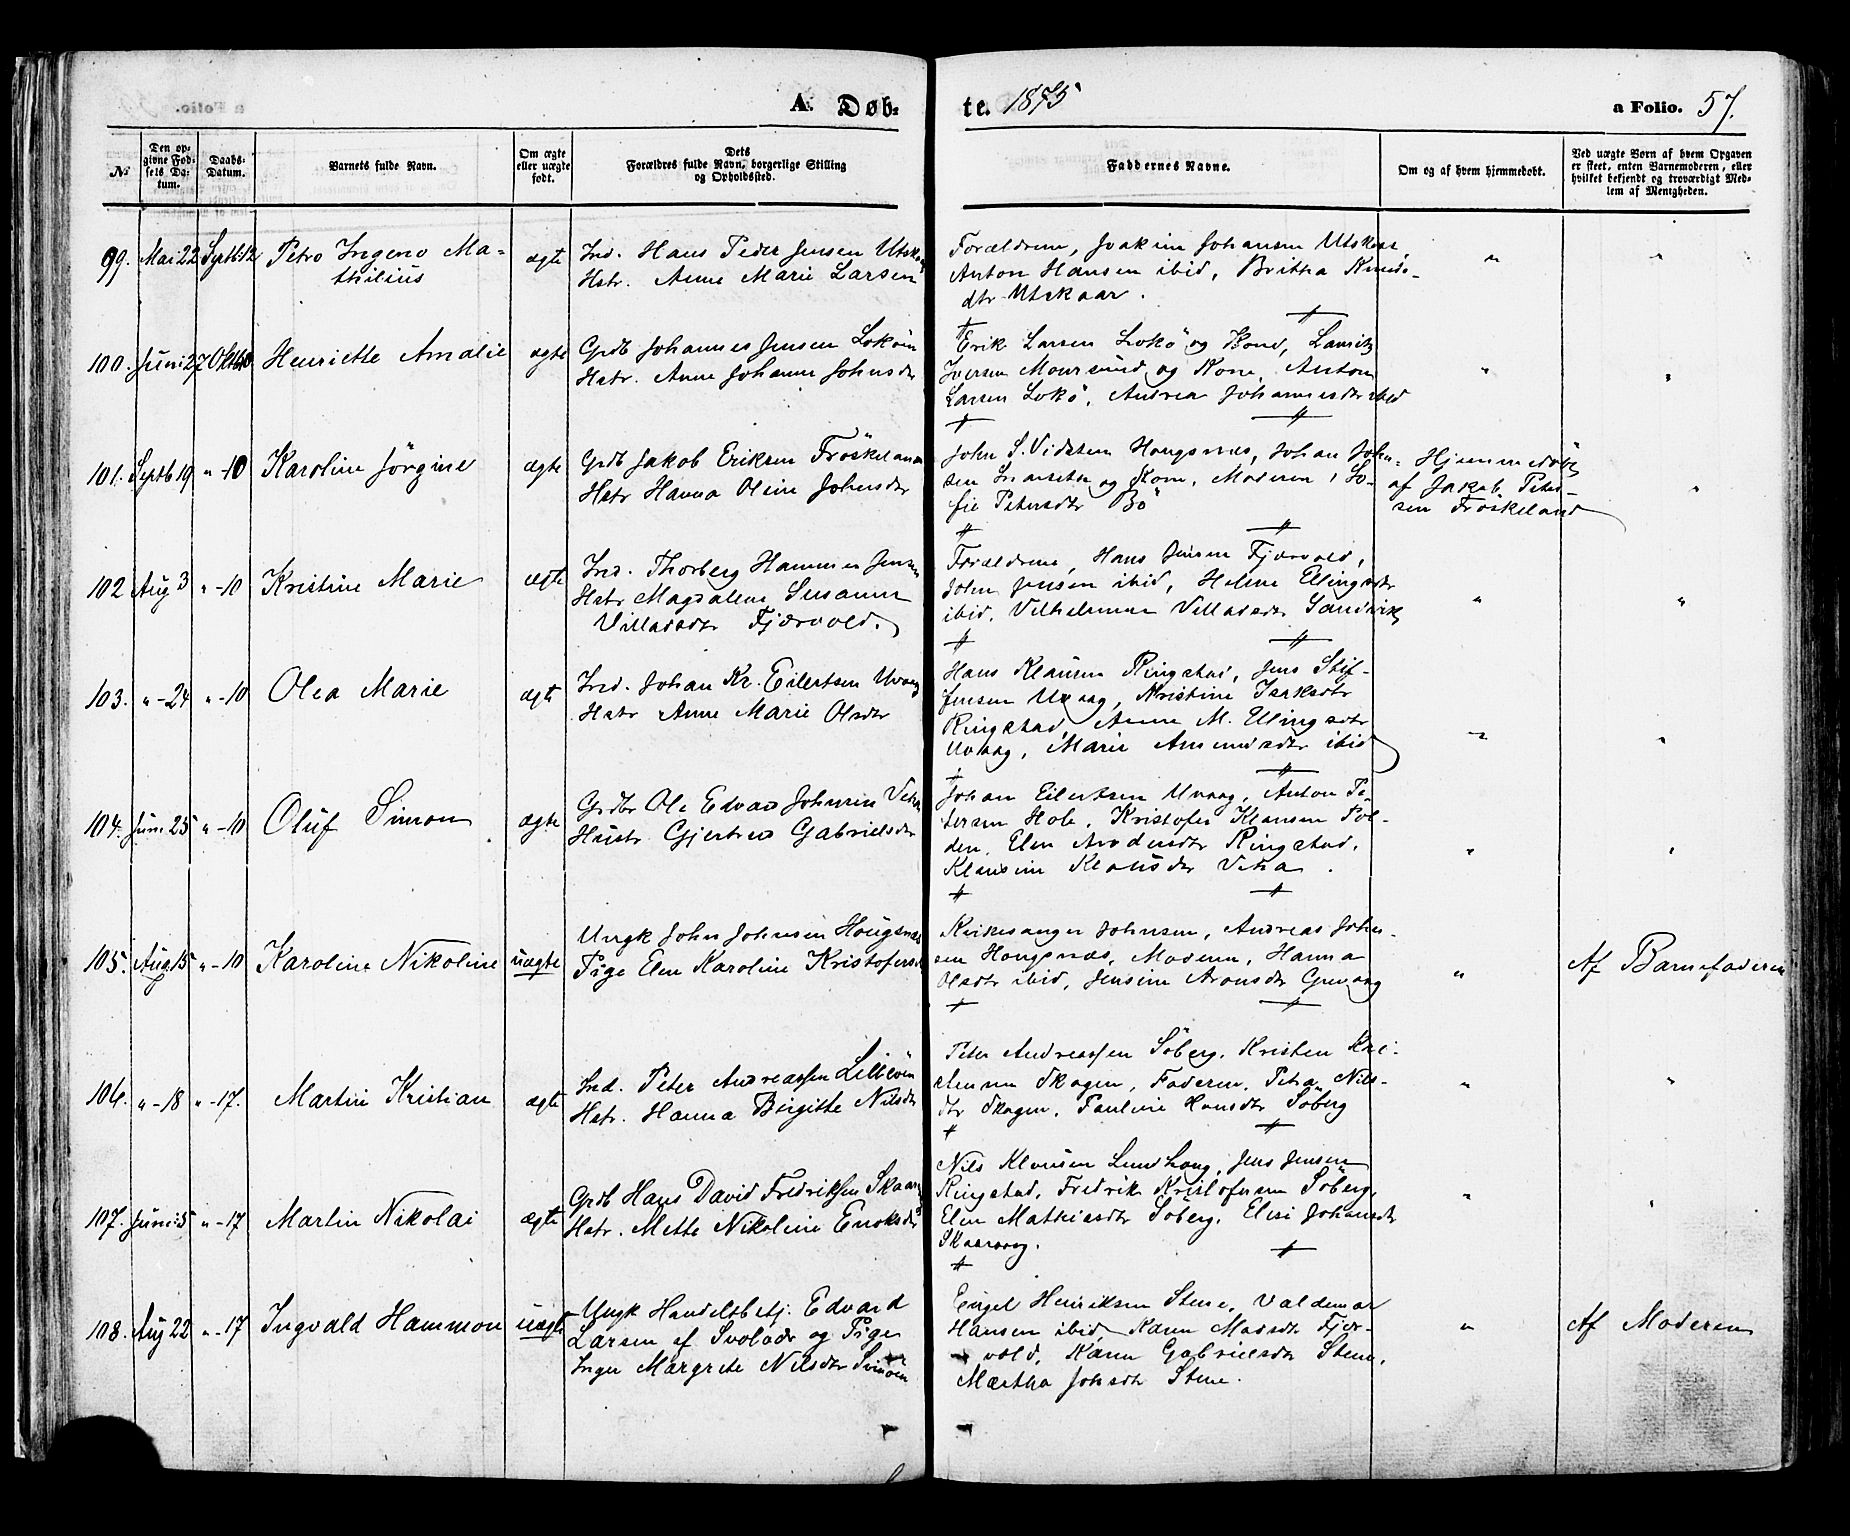 A. Døb-
te. 1875
a Folio. 57.
No
Den op-
givne Fød-
sels Da-
tum.
Daabs-
Datum.
Barnets fulde Navn.
Om ægte
eller uægte
født.
Dets
Forældres fulde Navn, borgerlige Stilling
og Opholdssted.
Faddernes Navne.
Om og af hvem hjemmedøbt.
Ved uægte Børn af hvem Opgaven
er skeet, enten Barnemoderen, eller
hvilket bekjendt og troværdigt Med-
lem af Menigheden.
99. Mai 22 Septb 12 Petro Ingeno Ma-
thilius
ægte
Ind. Hans Peder Jensen
Hstr. Anne Marie Larsen
Forældrene, Joakim Johansen Utskaar,
Anton Hansen ibid, Britha Knuds-
dtr Utskaar.
" "
100. Juni 27 Henriette Amalie
ægte
Grdb Johannes Jensen
Hstr. Anne Johanna Johnsdr
Erik Larsen Lokö og Kone, Lauritz
Iversen Moursund og Kone, Anton
Larsen Lokö, Andrea Johannesdtr ibid
" "
101. Septb 19 " -10 Karoline Jörgine
ægte
Grdb Jakob Eriksen Fröskeland
Hstr Hanna Oline Johnsdr
John S. Vidsten Hougsnæs, Johan John-
sen og Kone, Moderen, So-
fie Petersdtr Bö
Hjemmedöbt
af Jakob Peter-
sen Fröskeland
"
102 Aug 3 " -10 Kristine Marie
ægte
Ind. Thorberg Hammer Jensen
Hstr Magdalena Susanna
Villadsdtr Fjærvold.
Forældrene, Hans Jensen Fjærvold,
John Jensen ibid, Helene Ellingsdtr
ibid, Vilhelmine Villadsdtr Sandvik
" "
103. " -24 " -10 Olea Marie
ægte
Ind. Johan Kr. Eilertsen Uvaag
Hstr Anne Marie Olsdtr
Hans Klausen Ringstad, Jens Stef-
fensen Uvaag, Kristine Isaksdtr
Ringstad, Anne M. Ellingsdtr
Uvaag, Marie ibid
" "
104. Juni 25 " -10 Oluf Simon
ægte
Grdbr Ole Edvard Johnsen
Hustr Gjertrud Gabrielsdr
Johan Eilertsen Uvaag, Anton Pe-
tersen Hole, Kristofer Klausen Pol-
den, Elen Ringstad,
Klausine Klausdtr
" "
105. Aug 15 " -10 Karoline Nikoline
uægte
Ungk John Johnsen Hougsnæs
Pige Elen Karoline
Kirkesanger Johnsen, Andreas John-
sen Hougsnæs, Moderen, Hanna
Olsdtr ibid, Jensine Aronsdtr
"
Af Barnefaderen
106. " -18 " -17. Martin Kristian
ægte
Ind. Peter Andreassen
Hstr. Hanna Birgitte Nilsdtr
Peter Andreassen Söberg, Kristen Kri-
stensen Skogen, Faderen, Petra Nils-
dtr Skogen, Pauline Hansdtr Söberg
" "
107. Juni 5 " -17 Martin Nikolai
ægte
Grdb Hans David Fredriksen
Hstr. Mette Nikoline Enoksdtr
Nils Klausen Jens Jensen
Ringstad, Fredrik Kristofersen Söberg,
Elen Mathiasdtr Söberg, Elisi Johansdtr
Skaarvaag.
" "
108. Aug 22 " -17 Ingvald Hammon
uægte
Ungk Handelsbetj. Edvard
Larsen af Svolvær og Pige
Inger Margrete Nilsdtr Svinöen
Engel Henriksen Stene, Valdemar
Hansen ibid, Karen Madsdtr Fjær-
vold, Karen Gabrielsdtr Stene,
Martha Johsdtr Stene.
"
Af Moderen